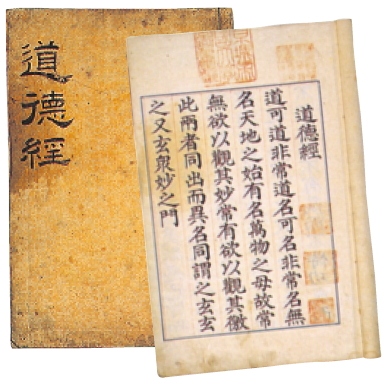 道德經
道德經
道可道非常道名可名非常名無
名天地之始有名萬物之母故常
無欲以觀其妙常有欲以觀其徼
此兩者同出而異名同謂之玄玄
之又玄衆妙之門